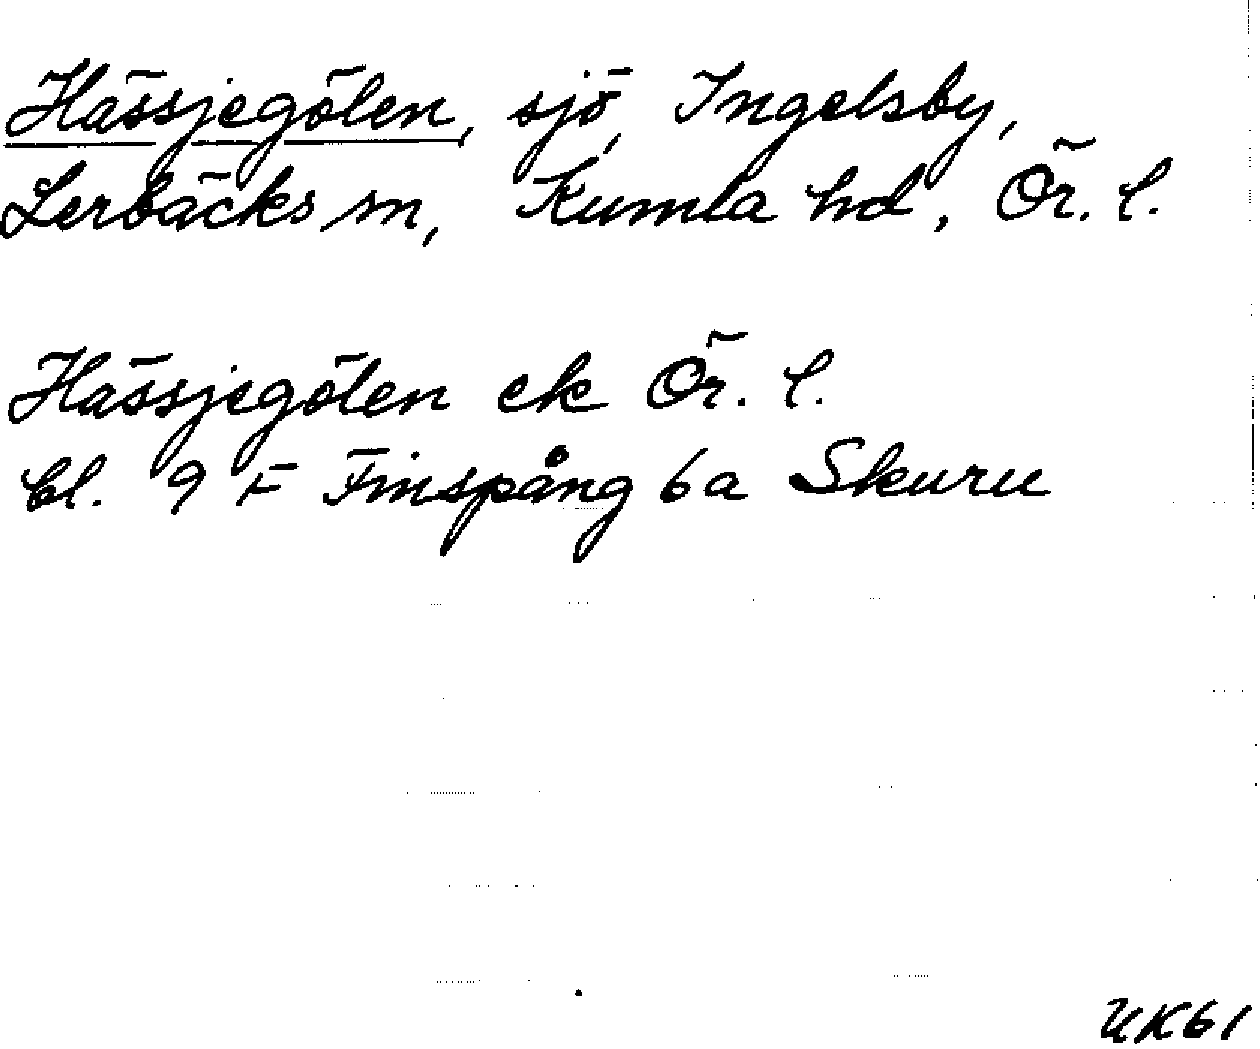 Hässjegölen, sjö, Ingelsby,
Lerbäcks sn, Kumla hd, Ör. l.
Hässjegölen ek Ör. l.
bl. 9 F Finspång 6a Skuru
UK61